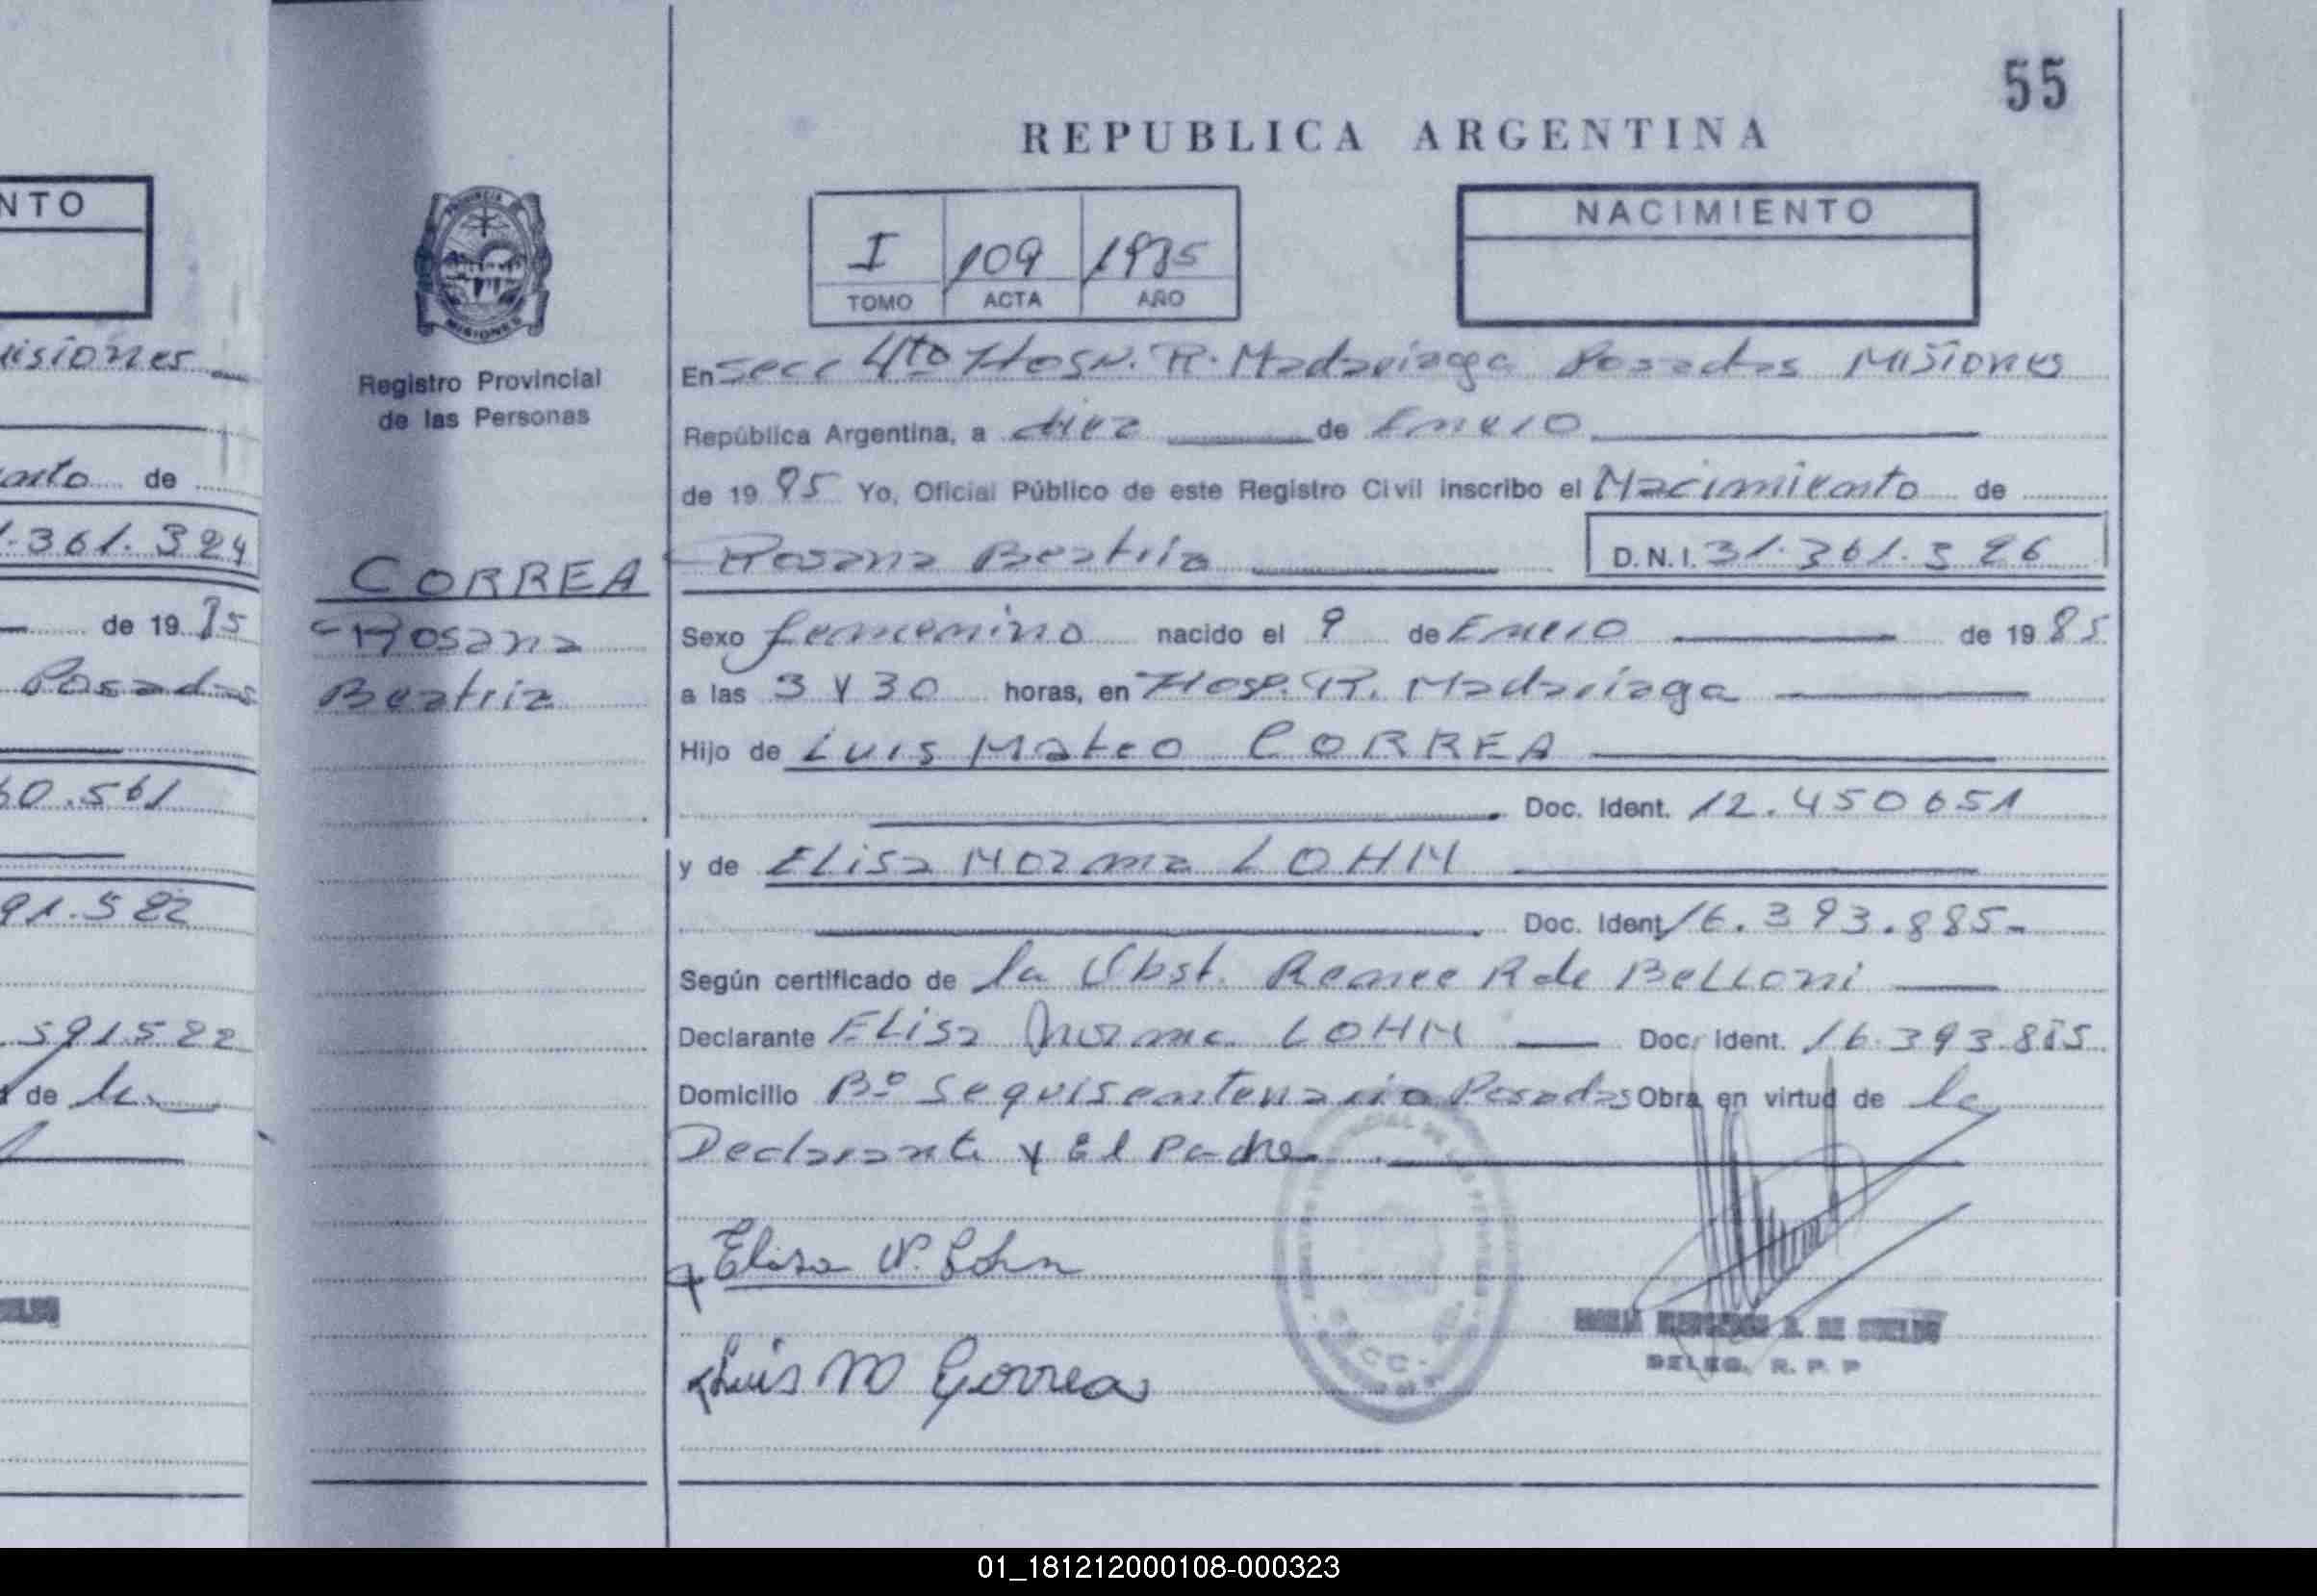 55
REPUBLICA ARGENTINA
NTO
PROVINCIA
MISIONES
I 109 1985
TOMO ACTA AÑO
NACIMIENTO
Registro Provincial
de las Personas
misiones
En Secc 4to Hosp. R. Madariaga Posadas Misiones
República Argentina, a diez de Enero
de 1985 Yo, Oficial Público de este Registro Civil inscribo el Nacimiento de
de
361.324
CORREA
Rosana
Beatriz
Rosana Beatriz D.N.I. 31.361.326
Sexo femenino nacido el 9 de Enero de 1985
de 1985
Posadas
a las 3 y 30 horas, en Hosp. R. Madariaga
Hijo de Luis Mateo CORREA
Doc. Ident. 12.450651
0.561
y de Elisa Norma LOHN
Doc. Ident 16.393.885-
91.522
Según certificado de la Obst. Renee R de Belloni
Declarante Elisa Norma LOHN Doc. Ident. 16.393.885
591.522
Domicilio Bº Sequisentenario Posadas Obra en virtud de la
de la
Declarante y El Padre
Elisa N. Lohn
Luis M Correa
DELEG. R. P. P
01_181212000108-000323